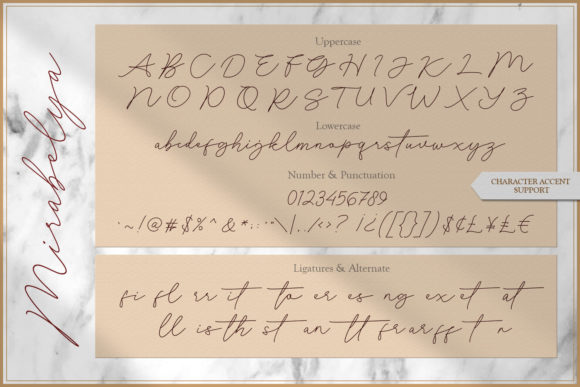 Mirabelya
Uppercase
A B C D E F G H I J K L M
N O P Q R S T U V W X Y Z
Lowercase
abcdefghijklmnopqrstuvwxyz
Number & Punctuation
0123456789
CHARACTER ACCENT
SUPPORT
Ligatures & Alternate
fi fl rr it to er es ng ex et at
ll is th st an tt fr ar ff t n